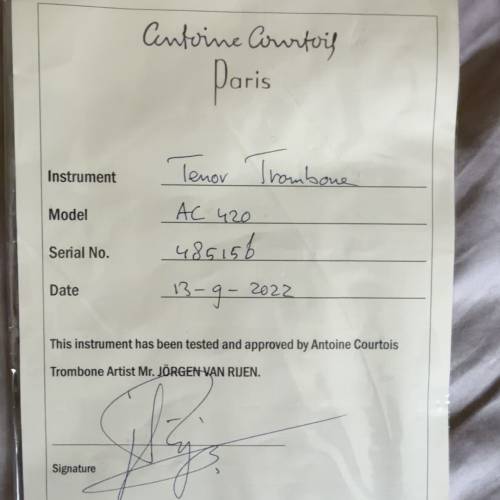 Antoine Courtois
Paris
Instrument Tenor Trombone
Model AC 420
Serial No. 485156
Date 13-9-2022
This instrument has been tested and approved by Antoine Courtois
Trombone Artist Mr. JÖRGEN VAN RIJEN.
Signature